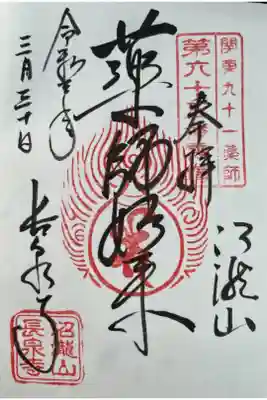 関東九十一薬師
第六十
奉拝
沼龍山
薬師如来
令和七年
三月三十日
長泉寺
沼龍山
長泉寺